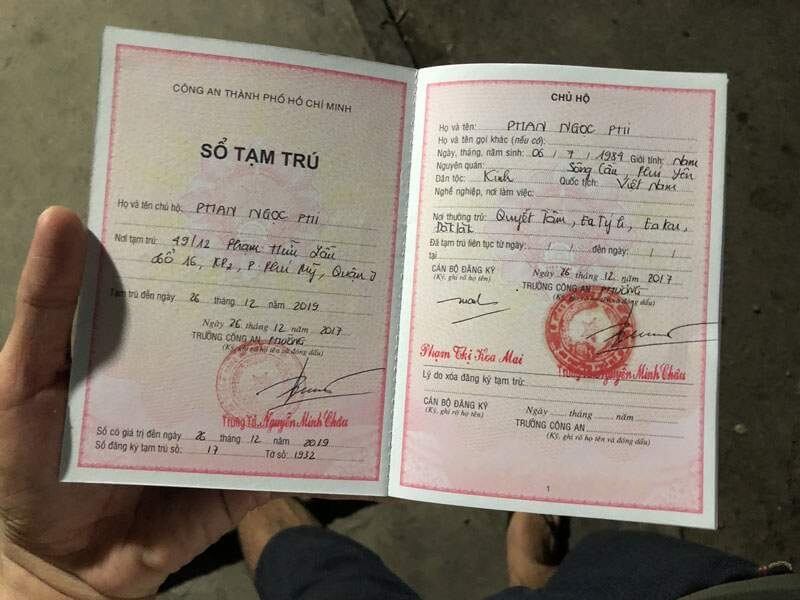 CÔNG AN THÀNH PHỐ HỒ CHÍ MINH
SỔ TẠM TRÚ
Họ và tên chủ hộ: PHAN NGỌC PHI
Nơi tạm trú: 49/12 Phạm Hữu Lầu
tổ 16, KP2, P. Phú Mỹ, Quận 7
Tạm trú đến ngày 26 tháng 12 năm 2019
Ngày 26 tháng 12 năm 2017
TRƯỞNG CÔNG AN PHƯỜNG
(Ký, ghi rõ họ tên và đóng dấu)
Trung Tá Nguyễn Minh Châu
Sổ có giá trị đến ngày 26 tháng 12 năm 2019
Sổ đăng ký tạm trú số: 17 Tờ số: 1932
CHỦ HỘ
Họ và tên: PHAN NGỌC PHI
Họ và tên gọi khác (nếu có):
Ngày, tháng, năm sinh: 06 / 7 / 1984 Giới tính: Nam
Nguyên quán: Sông Cầu, Phú Yên
Dân tộc: Kinh Quốc tịch: Việt Nam
Nghề nghiệp, nơi làm việc:
Nơi thường trú: Quyết Tâm, Ea Tý h, Ea Kar,
Đăk Lăk
Đã tạm trú liên tục từ ngày: / / đến ngày: / /
tại
Ngày 26 tháng 12 năm 2017
CÁN BỘ ĐĂNG KÝ TRƯỞNG CÔNG AN PHƯỜNG
(Ký, ghi rõ họ tên) (Ký, ghi rõ họ tên và đóng dấu)
Phạm Thị Hoa Mai Trung Tá Nguyễn Minh Châu
Lý do xóa đăng ký tạm trú:
Ngày ...... tháng ...... năm ......
CÁN BỘ ĐĂNG KÝ TRƯỞNG CÔNG AN
(Ký, ghi rõ họ tên) (Ký, ghi rõ họ tên và đóng dấu)
1